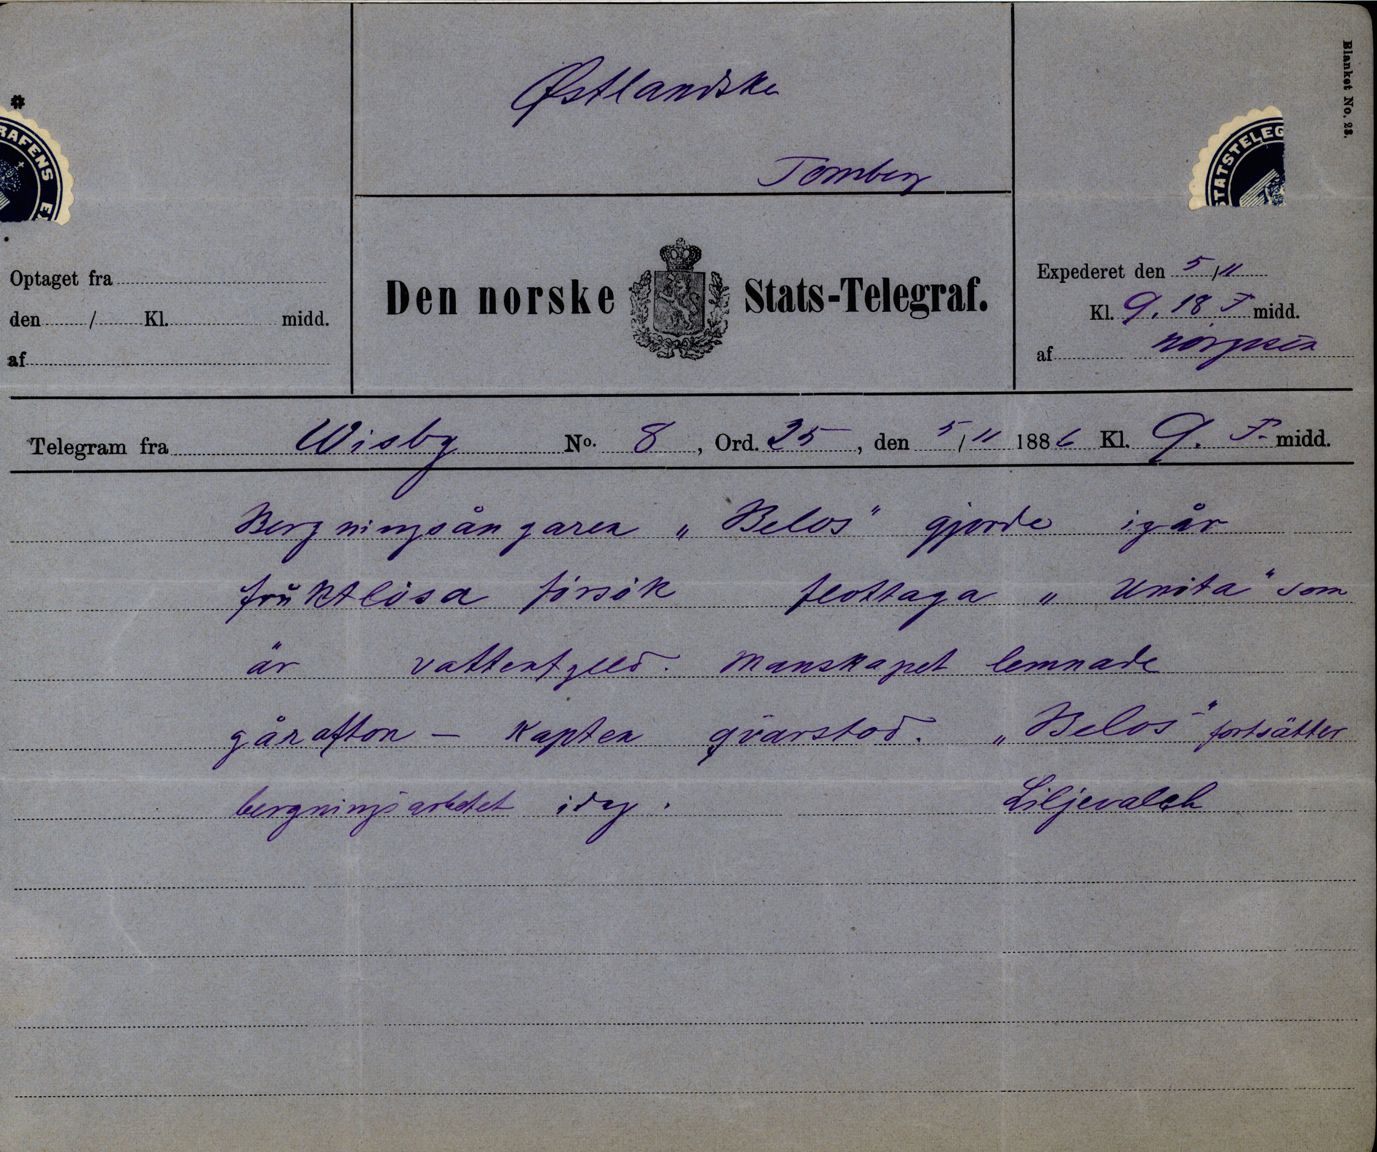 Blanket No. 23.
Østlandske
Tønsberg
*
RAFENS
STATSTELEG
Optaget fra
den / Kl. midd.
af
Den norske Stats-Telegraf.
Expederet den 5/11
Kl. 9.18 F midd.
af
Telegram fra Wisby No. 8, Ord. 25, den 5/11 1886 Kl. 9. F. midd.
Bergningsångaren „Belos" gjorde igår
fruktlösa försök flottaga „Unita" som
är vattenfylld. Manskapet lemnade
går afton — Kapten qvarstod. „Belos" fortsätter
bergningsarbetet idag. Liljevalch